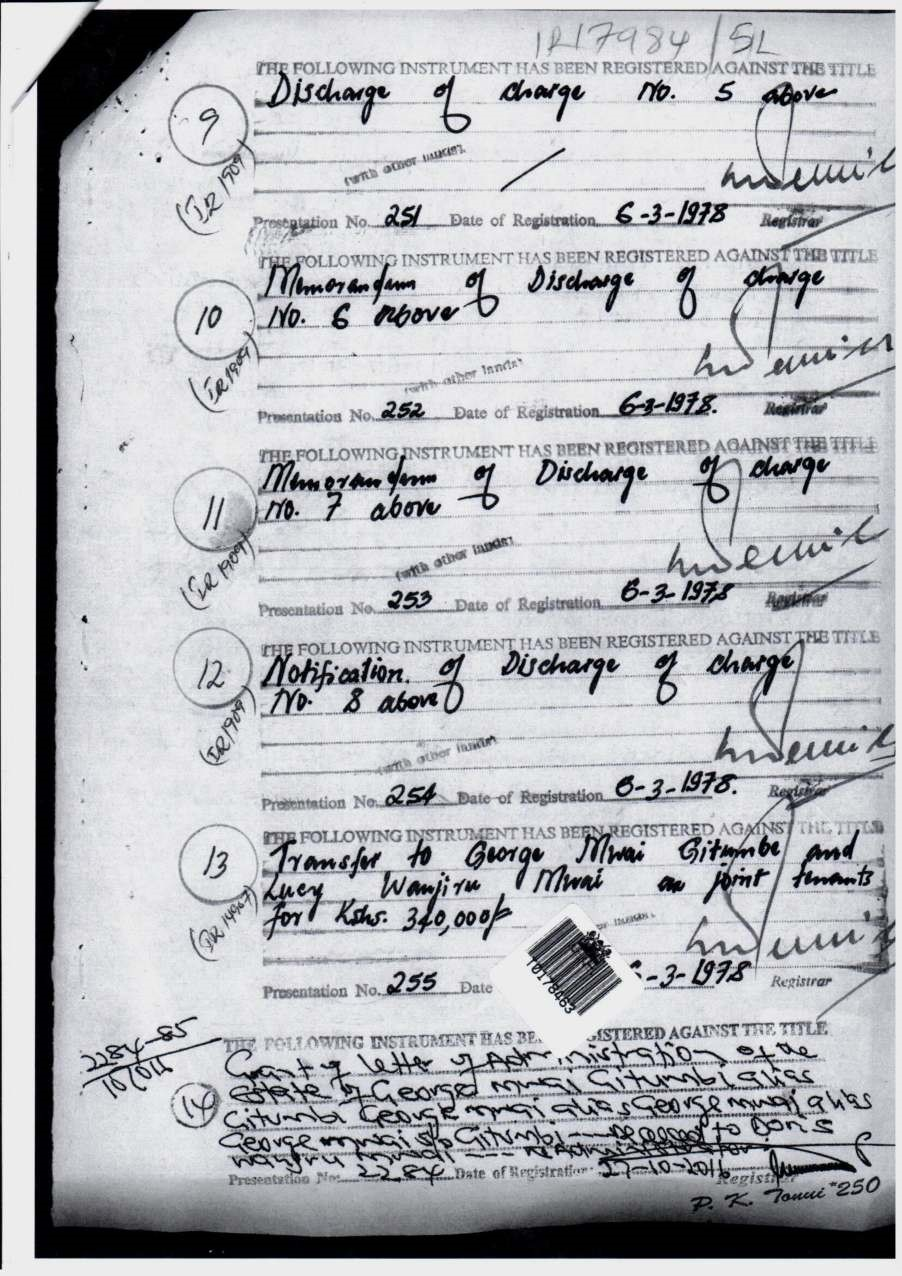 IR17984/51L
THE FOLLOWING INSTRUMENT HAS BEEN REGISTERED AGAINST THE TITLE
9
Discharge of charge No. 5 above
(with other lands).
(IR 1909)
Presentation No. 251 Date of Registration 6-3-1978 Registrar
THE FOLLOWING INSTRUMENT HAS BEEN REGISTERED AGAINST THE TITLE
10
Memorandum of Discharge of charge
No. 6 above
(with other lands)
(IR 1909)
Presentation No. 252 Date of Registration 6-3-1978. Registrar
THE FOLLOWING INSTRUMENT HAS BEEN REGISTERED AGAINST THE TITLE
11
Memorandum of Discharge of charge
No. 7 above
(with other lands)
(IR 1909)
Presentation No. 253 Date of Registration 6-3-1978 Registrar
THE FOLLOWING INSTRUMENT HAS BEEN REGISTERED AGAINST THE TITLE
12
Notification of Discharge of charge
No. 8 above
(with other lands)
(IR 1909)
Presentation No. 254 Date of Registration 6-3-1978. Registrar
THE FOLLOWING INSTRUMENT HAS BEEN REGISTERED AGAINST THE TITLE
13
Transfer to George Mwai Gitumbe and
Lucy Wanjiru Mwai as joint tenants
for Kshs. 340,000/=
Presentation No. 255 Date -3-1978 Registrar
10178463
2284-85
THE FOLLOWING INSTRUMENT HAS BEEN REGISTERED AGAINST THE TITLE
14
Grant of letter of Administration of the
Estate of George mwai Gitumbi alias
Gitumbi George mwai alias George mwai alias
George mwai s/o Gitumbi - Deceased to Doris
wanjiru mwai
Presentation No. 2284 Date of Registration 27-10-2016 Registrar
P. K. Tonui #250